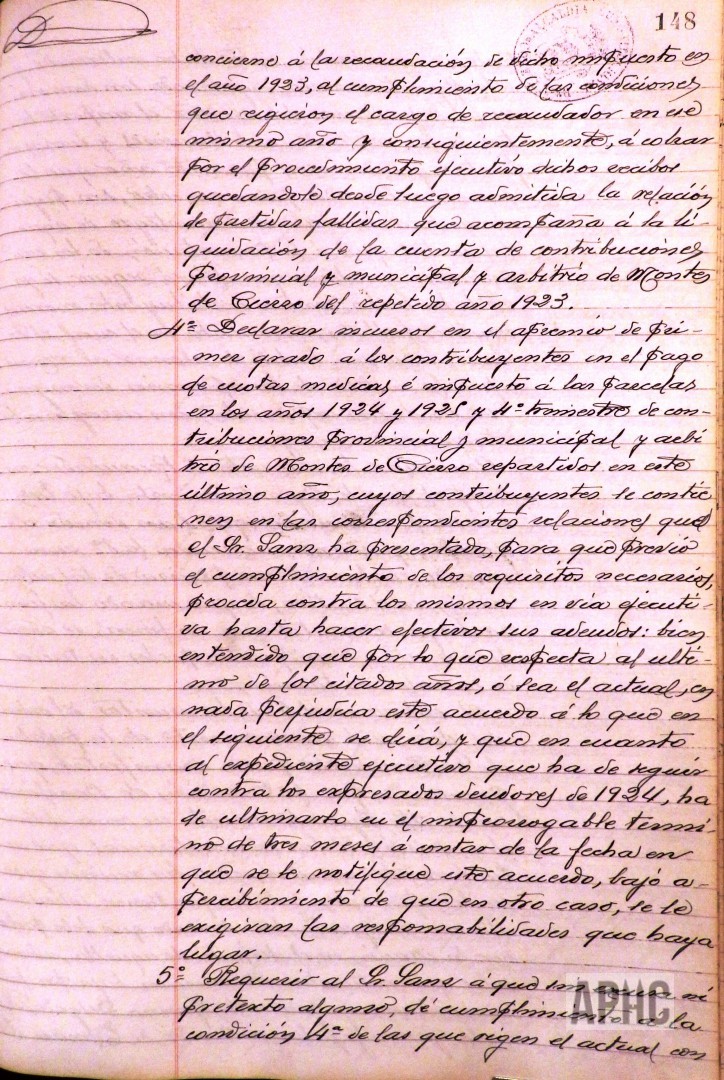 148
concierne á la recaudación de dicho impuesto en
el año 1923, al cumplimiento de las condiciones
que rigieron el cargo de recaudador en ese
mismo año y consiguientemente, á cobrar
por el procedimiento ejecutivo dichos recibos
quedandole desde luego admitida la relación
de partidas fallidas que acompaña á la li
quidación de la cuenta de contribuciones
provincial y municipal y arbitrio de Montes
de Cierzo del repetido año 1923.
4º Declarar incursos en el apremio de pri-
mer grado á los contribuyentes en el pago
de cuotas medicas é impuesto á las parcelas
en los años 1924 y 1925 y 4º trimestre de con-
tribuciones provincial y municipal y arbi
trio de Montes de Cierzo repartidos en este
último año, cuyos contribuyentes se contie
nen en las correspondientes relaciones que
el Sr. Sanz ha presentado, para que previo
el cumplimiento de los requisitos necesarios,
proceda contra los mismos en via ejecuti-
va hasta hacer efectivos sus adeudos: bien
entendido que por lo que respecta al ulti-
mo de los citados años, ó sea el actual, en
nada perjudica este acuerdo á lo que en
el siguiente se dirá, y que en cuanto
al expediente ejecutivo que ha de seguir
contra los expresados deudores de 1924, ha
de ultimarlo en el improrrogable termi-
no de tres meses á contar de la fecha en
que se le notifique este acuerdo, bajo a-
percibimiento de que en otro caso, se le
exigiran las responsabilidades que haya
lugar.
5º Requerir al Sr. Sanz á que sin excusa ni
pretexto alguno, dé cumplimiento á la
condición 4ª de las que rigen el actual con
APHC